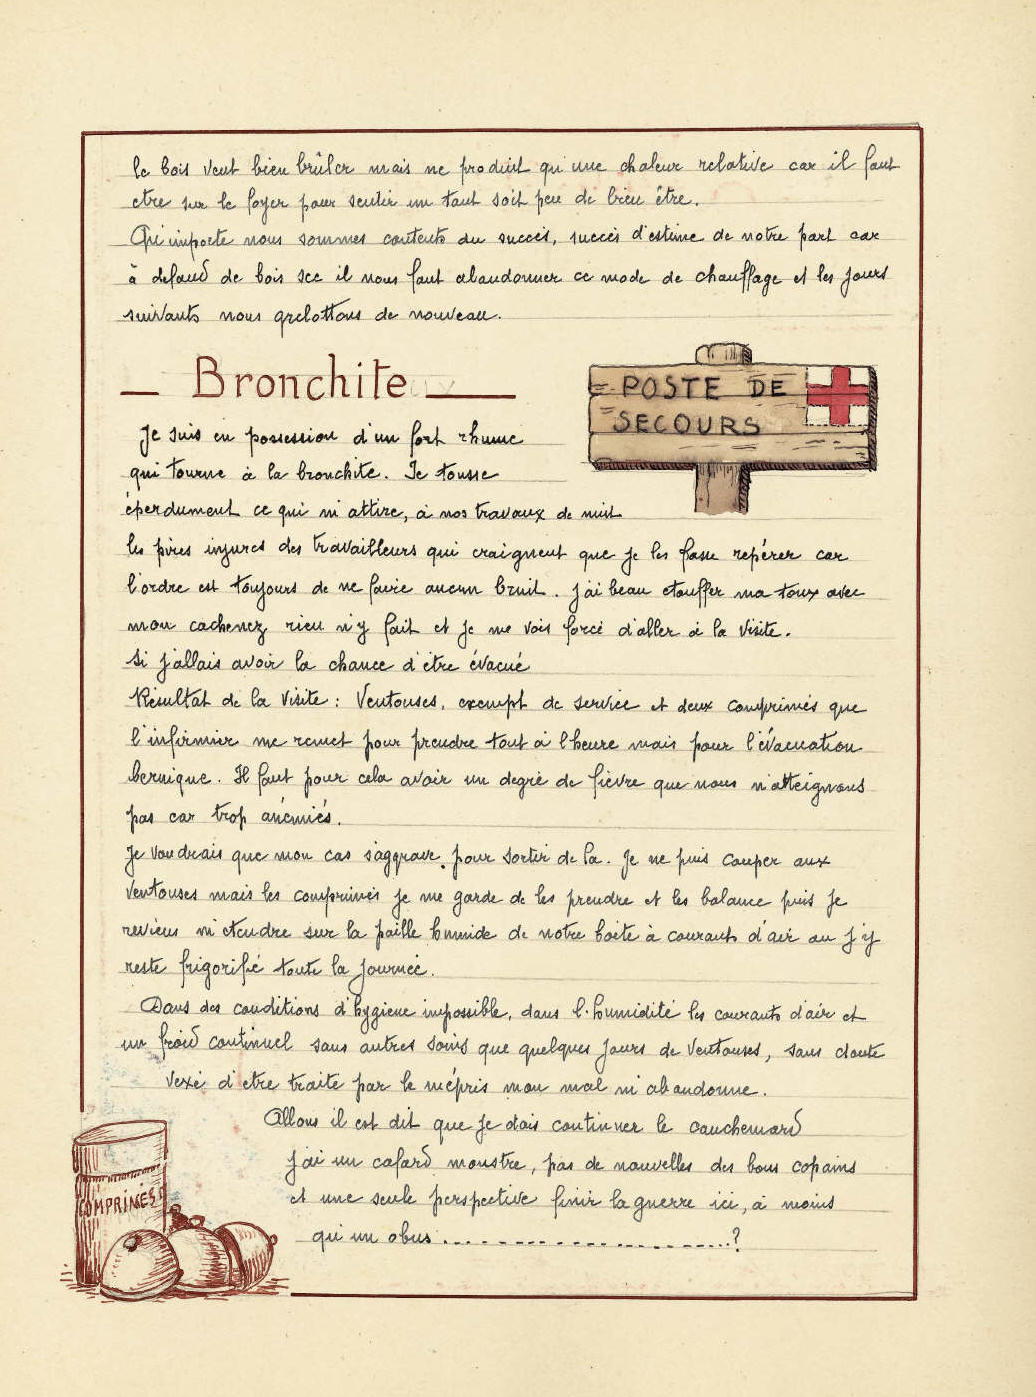 le bois veut bien brûler mais ne produit qu'une chaleur relative car il faut
etre sur le foyer pour sentir un tant soit peu de bien être.
Qu'importe nous sommes contents du succès, succès d'estime de notre part car
à defaud de bois sec il nous faut abandonner ce mode de chauffage et les jours
suivants nous grelottons de nouveau.
Bronchite
POSTE DE
SECOURS
Je suis en possession d'un fort rhume
qui tourne à la bronchite. Je tousse
éperdument ce qui m'attire, à nos travaux de nuit
les pires injures des travailleurs qui craignent que je les fasse repérer car
l'ordre est toujours de ne faire aucun bruit. J'ai beau étouffer ma toux avec
mon cachenez rien n'y fait et je me vois forcé d'aller à la visite.
Si j'allais avoir la chance d'être évacué
Résultat de la visite : Ventouses, exempt de service et deux comprimés que
l'infirmier me remet pour prendre tout à l'heure mais pour l'évacuation
bernique. Il faut pour cela avoir un degré de fièvre que nous n'atteignons
pas car trop anémiés.
Je voudrais que mon cas s'aggrave pour sortir de là. Je ne puis couper aux
ventouses mais les comprimés je me garde de les prendre et les balance puis je
reviens m'étendre sur la paille humide de notre boite à courants d'air ou j'y
reste frigorifié toute la journée.
Dans des conditions d'hygiène impossible, dans l'humidité les courants d'air et
un froid continuel sans autres soins que quelques jours de ventouses, sans doute
vexé d'etre traité par le mépris mon mal m'abandonne.
Allons il est dit que je dois continuer le cauchemard
J'ai un cafard monstre, pas de nouvelles des bons copains
et une seule perspective finir la guerre ici, à moins
qu'un obus ........................?
COMPRIMÉS